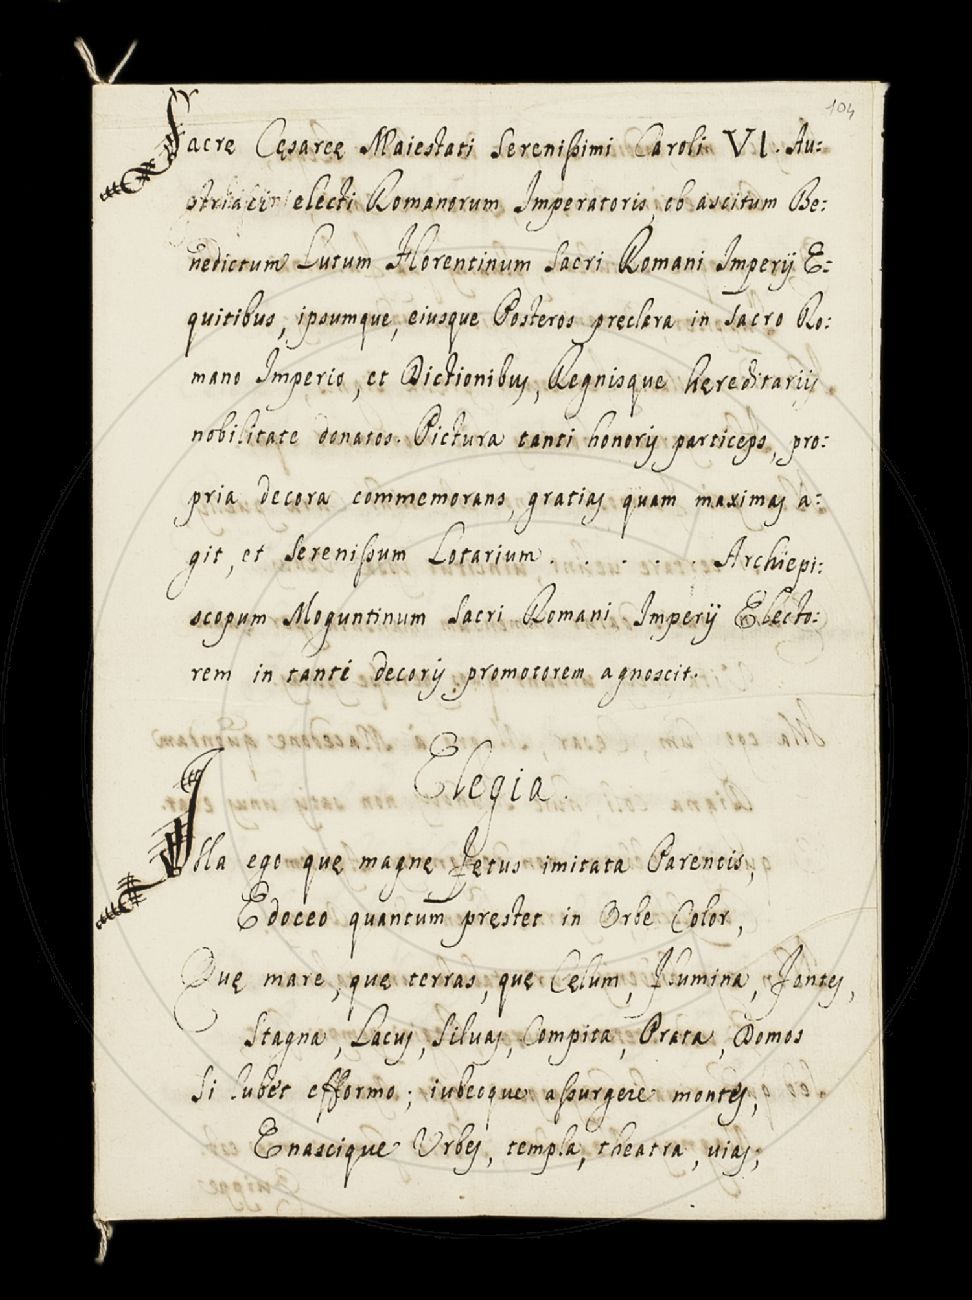 104
Sacrę Cęsareę Maiestati Serenißimi Caroli VI. Au:
striaci electi Romanorum Imperatoris, ob ascitum Be:
nedictum Lutum Florentinum Sacri Romani Imperÿ E:
quitibus, ipsumque, eiusque Posteros preclara in Sacro Ro:
mano Imperio, et Dictionibus, Regnisque hęreditariis
nobilitate donatos. Pictura tanti honoris particeps, pro:
pria decora commemorans, gratias quam maximas a:
git, et Serenißum Lotarium . . . . . . Archiepi:
scopum Moguntinum Sacri Romani Imperÿ Electo:
rem in tanti decoris promotorem agnoscit.
Elegia.
Illa ego quę magnę Fętus imitata Parentis,
Edoceo quantum pręstet in Orbe Color,
Quę mare, quę terras, quę Cęlum, Flumina, Fontes,
Stagna, Lacus, Silvas, Compita, Prata, Domos
Si lubet efformo; iubeoque aßurgere montes,
Enascique Urbes, templa, theatra, vias;